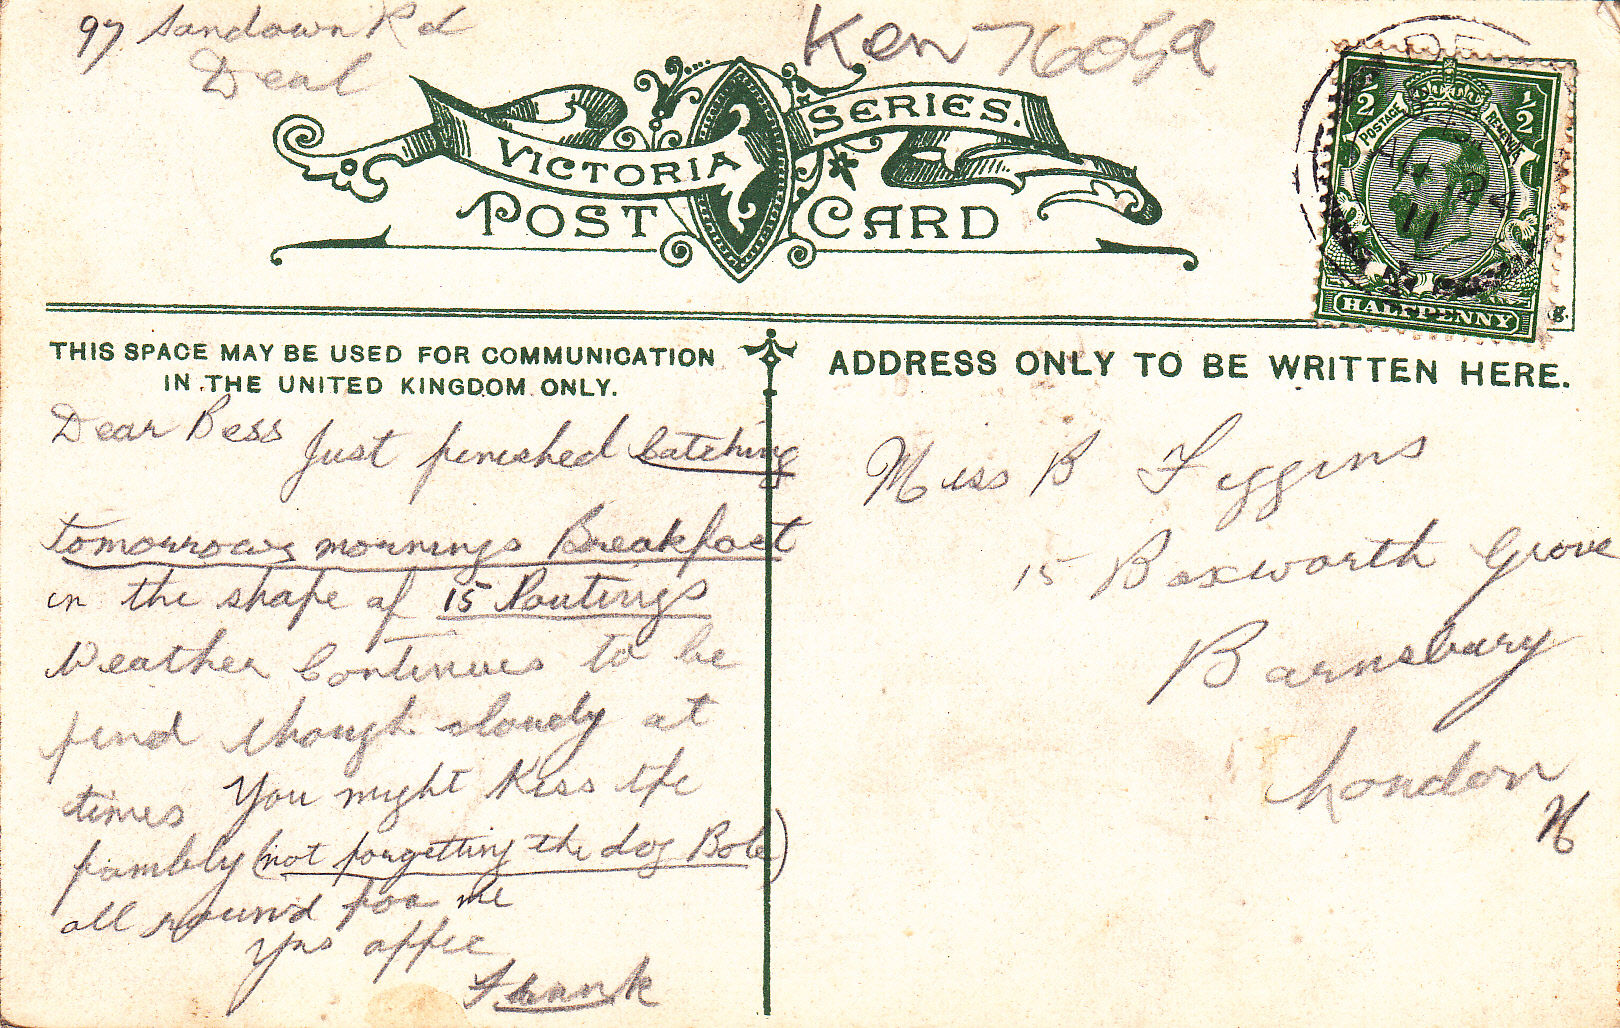 97 Sandown Rd
Deal
Ken
VICTORIA SERIES.
POST CARD
1/2 POSTAGE REVENUE 1/2
HALFPENNY
THIS SPACE MAY BE USED FOR COMMUNICATION
IN THE UNITED KINGDOM ONLY.
ADDRESS ONLY TO BE WRITTEN HERE.
Dear Bess
Just finished Catching
tomorrows mornings Breakfast
in the shape of 15 Poutings
Weather Continues to be
find though cloudy at
times You might Kiss the
fambly (not forgetting the dog Bob)
all round for me
Yrs affec
Frank
Miss B Figgins
15 Boxworth Grove
Barnsbury
London
N